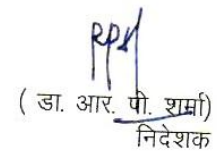 ( डा. आर. पी. शर्मा)
निदेशक